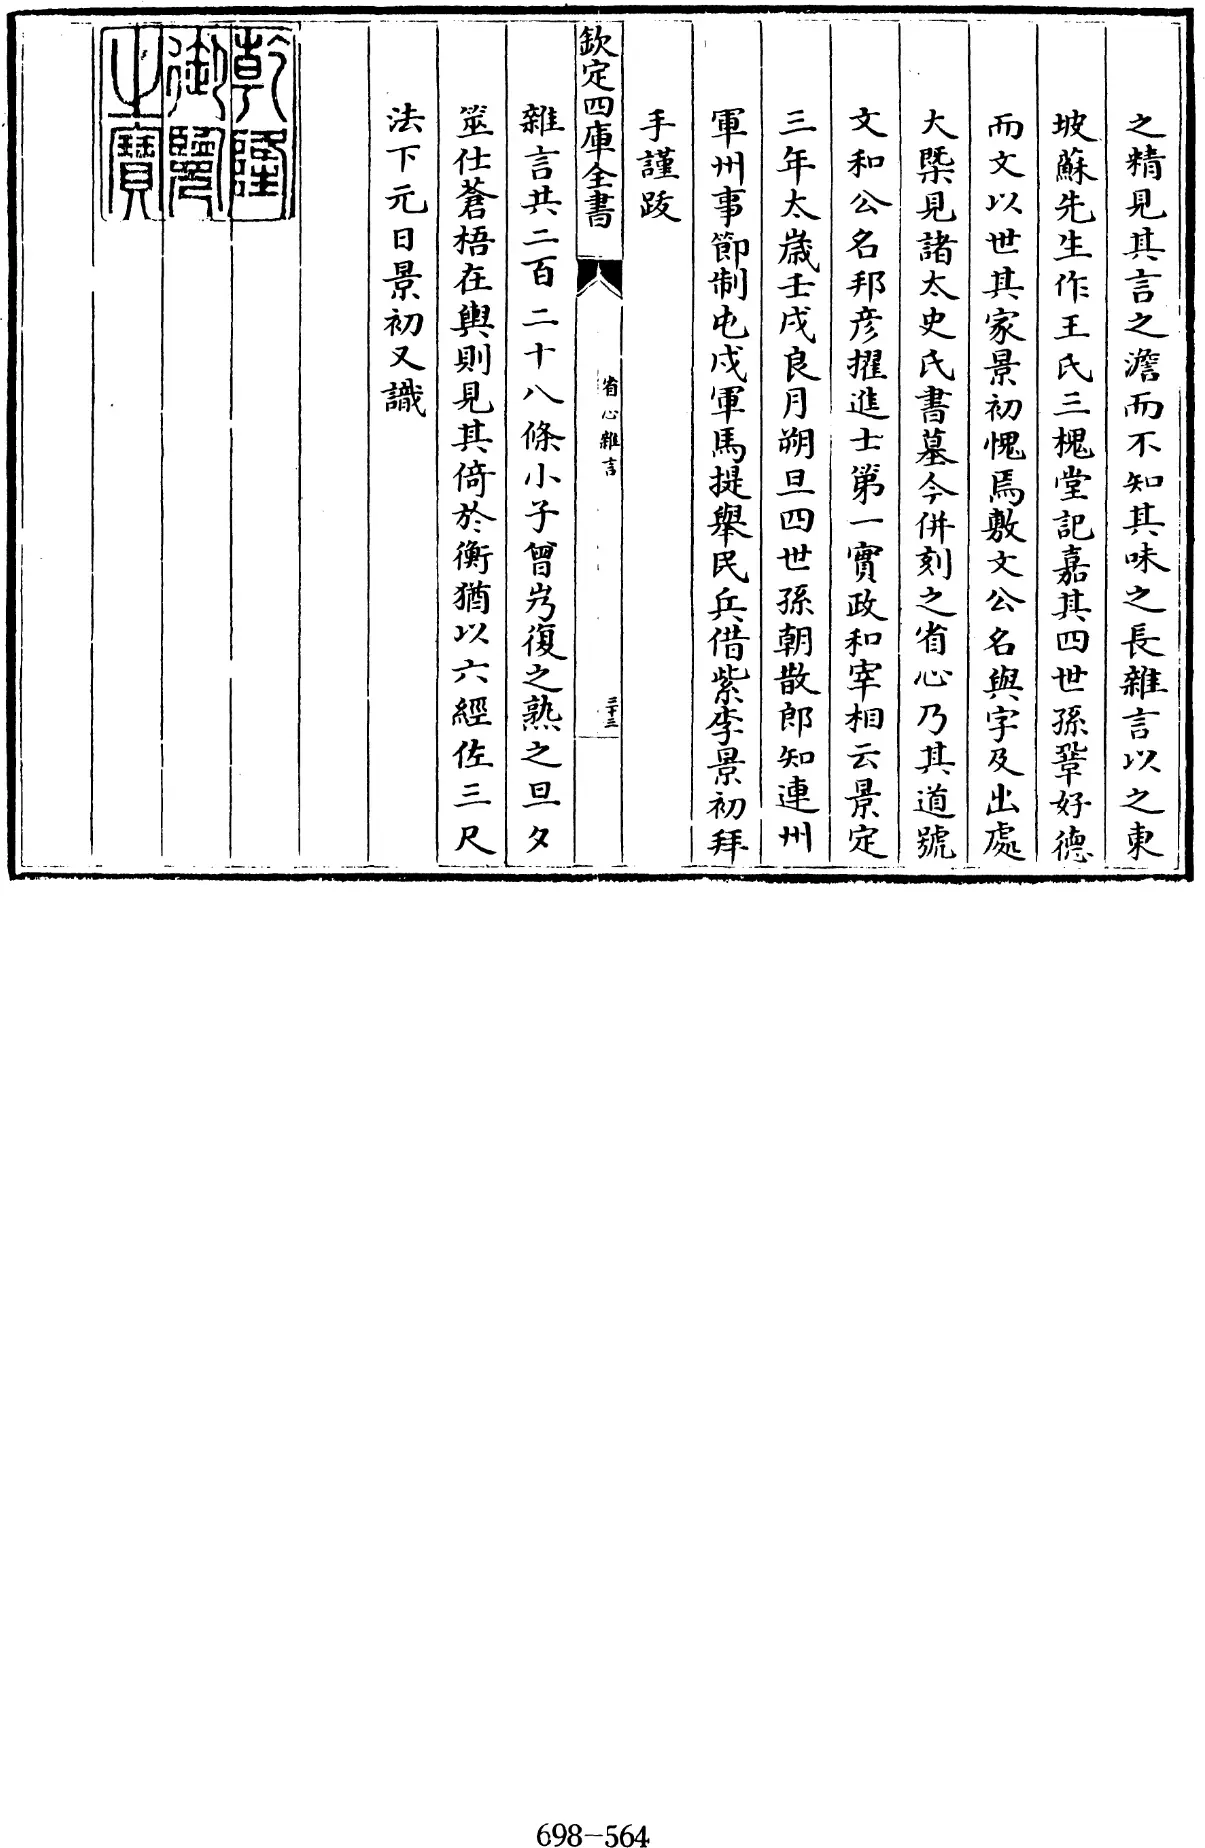 之精見其言之澹而不知其味之長雜言以之東
坡蘇先生作王氏三槐堂記嘉其四世孫鞏好德
而文以世其家景初愧焉敷文公名與字及出處
大槩見諸太史氏書墓今併刻之省心乃其道號
文和公名邦彦擢進士第一實政和宰相云景定
三年太嵗壬戌良月朔旦四世孫朝散郎知連州
軍州事節制屯戍軍馬提舉民兵借紫李景初拜
手謹跋
欽定四庫全書
省心雜言
三十三
雜言共二百二十八條小子曾岃復之熟之旦夕
筮仕蒼梧在輿則見其倚於衡猶以六經佐三尺
法下元日景初又識
乾隆
御覽
之寶
698-564